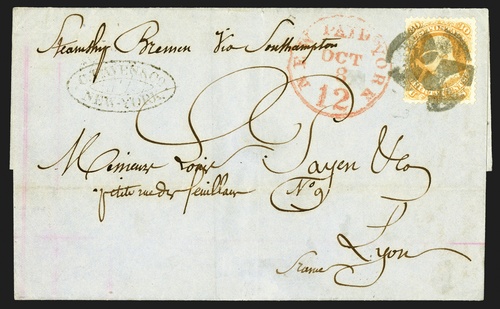 Steamship Bremen Via Southampton
NEW PAID YORK
OCT
8
12
NEW-YORK
Messieurs Louis Payen & Co
petite rue des feuillans No 9
Lyon
France